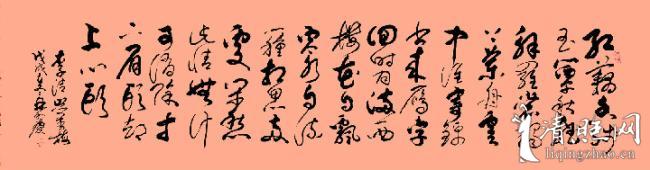 红藕香残
玉簟秋轻
解罗裳独
上兰舟云
中谁寄锦
书来雁字
回时月满西
楼花自飘
零水自流
一种相思两
处闲愁
此情无计
可消除才
下眉头却
上心头
李清照一剪梅
戊戌
清照网
liqingzhao.cn